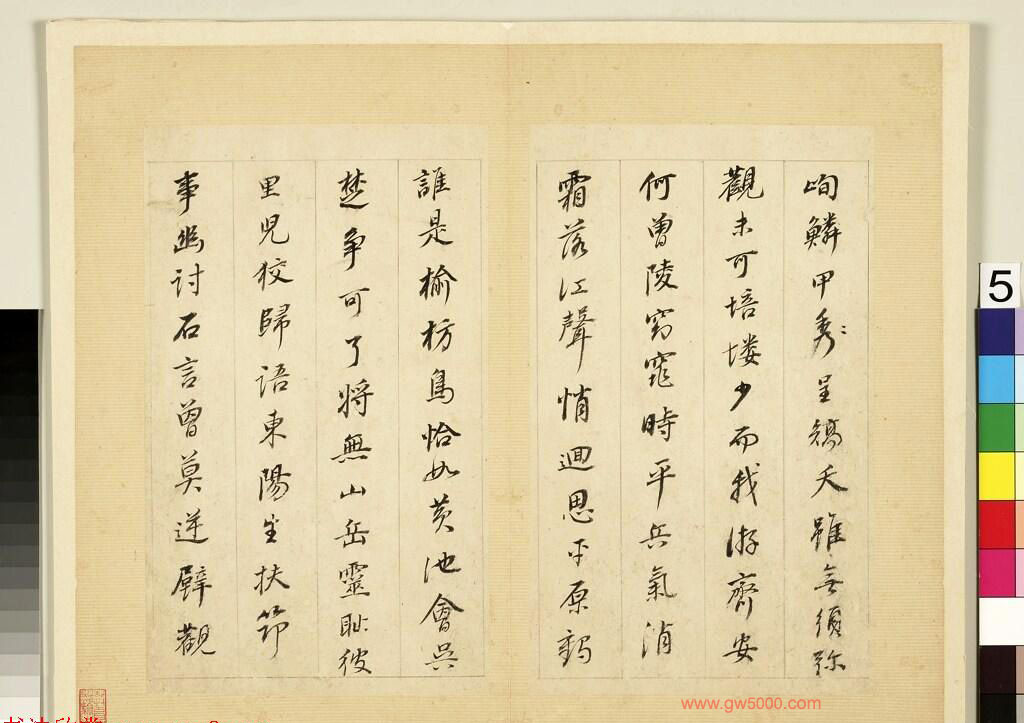 峋鱗甲秀呈矯夭雖無須弥
觀未可培塿少而我游齊安
何曾陵窈窕時平兵氣消
霜落江聲悄迴思平原鷂
誰是榆枋鳥恰如黃池會吳
楚爭可了將無山岳靈耻彼
里兒狡歸語東陽生扶筇
事幽討石言曾莫逆壁觀
5
www.gw5000.com